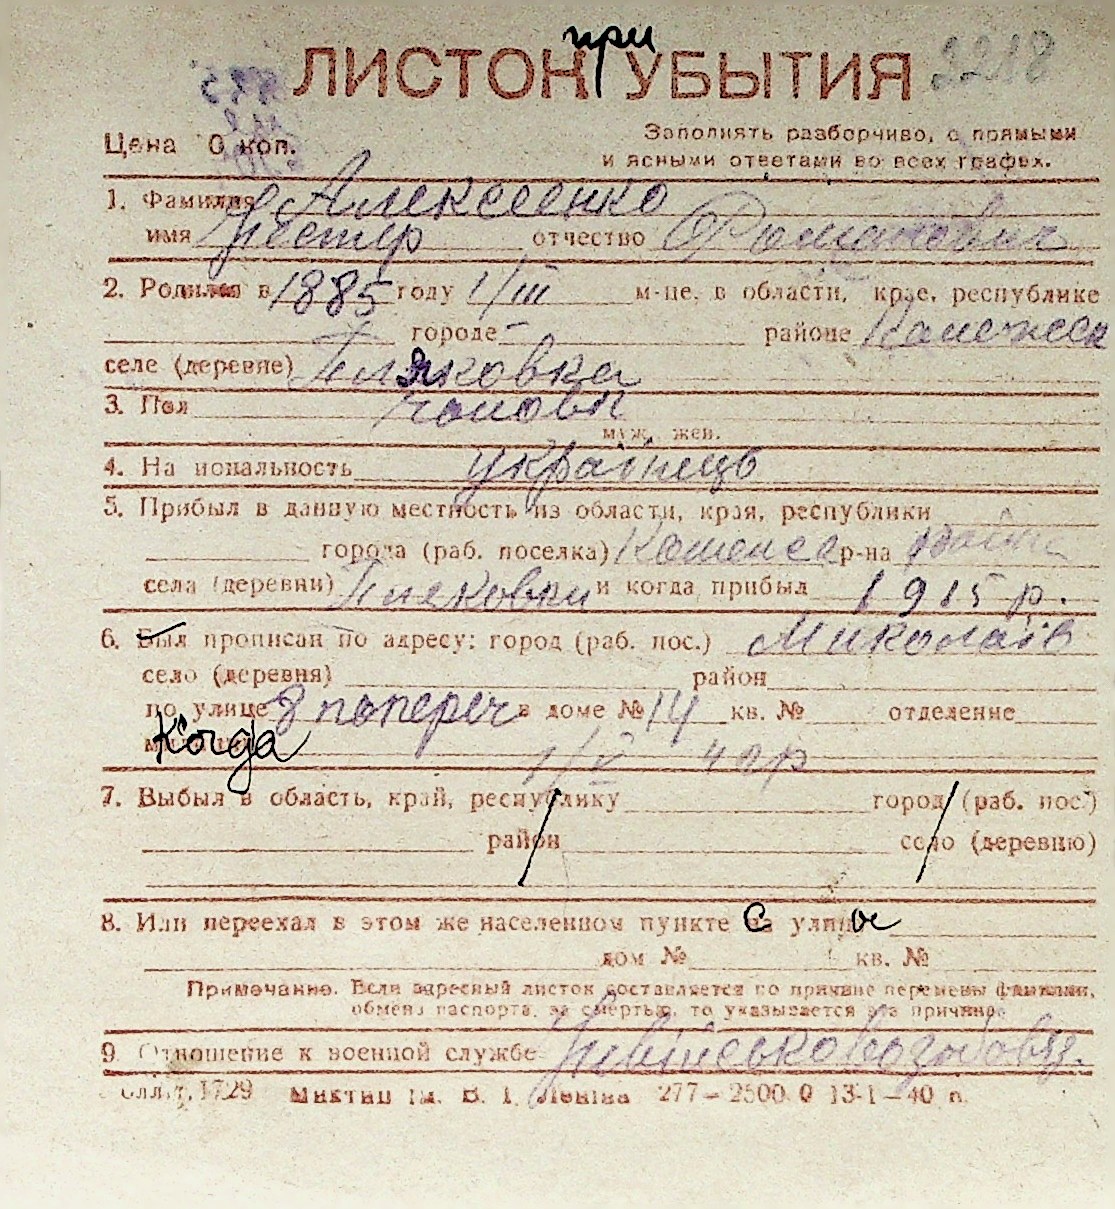 при
ЛИСТОК УБЫТИЯ 2218
Цена 10 коп.
Заполнять разборчиво, с прямыми
и ясными ответами во всех графах.
1. Фамилия Алексеенко
имя Нестер отчество Романович
2. Родился в 1885 году 1/III м-це, в области, крае, республике
городе - районе Каменск
селе (деревне) Пляковка
3. Пол чолові
муж, жен.
4. Национальность українець
5. Прибыл в данную местность из области, края, республики
города (раб. поселка) Каменса р-на
села (деревни) Пляковки и когда прибыл 1915 р.
6. Был прописан по адресу: город (раб. пос.) Миколаїв
село (деревня) район
по улице 8 попереч в доме № 14 кв. № отделение
Когда 1/V 40 р
7. Выбыл в область, край, республику город (раб. пос.)
район село (деревню)
8. Или переехал в этом же населенном пункте с улицы
дом № кв. №
Примечание. Если адресный листок составляется по причине перемены фамилии,
обмена паспорта, за смертью, то указывается эта причина
9. Отношение к военной службе Невійськовозобовяз.
1729 Миктип ім. В. І. Леніна 277—2500 0 13-1—40 п.